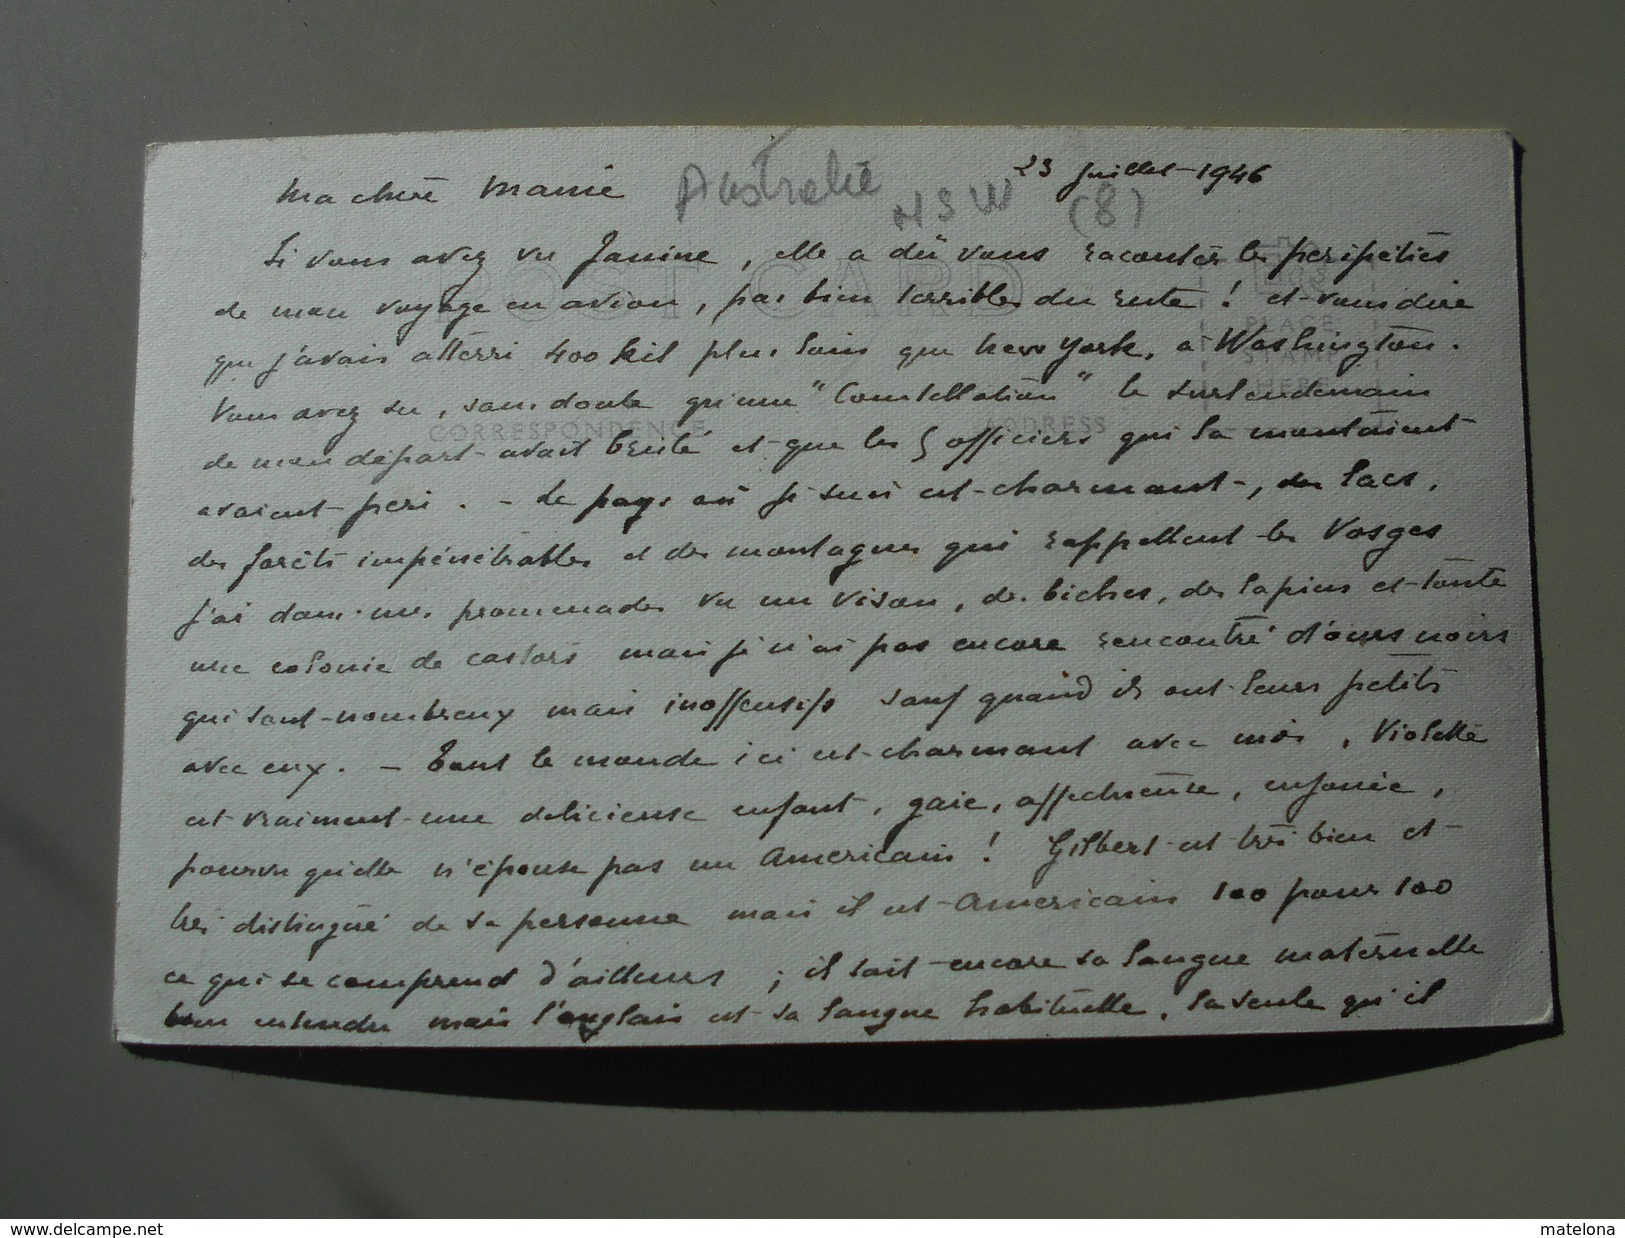 Australie NSW (8)
23 juillet 1946
Ma chère Mamie
POST CARD
PLACE
STAMP
HERE
CORRESPONDENCE
ADDRESS
Si vous avez vu Janine, elle a dû vous raconter les péripéties
de mon voyage en avion, pas bien terribles du reste ! et vous dire
que j'avais atterri 400 kil plus loin que New York, à Washington.
Vous avez su, sans doute qu'un "Constellation" le surlendemain
de mon départ avait brûlé et que les 5 officiers qui la montaient
avaient péri. - Le pays où je suis est charmant, des lacs,
des forêts impénétrables et des montagnes qui rappellent les Vosges
J'ai dans mes promenades vu un vison, des biches, des lapins et toute
une colonie de castors mais je n'ai pas encore rencontré d'ours noirs
qui sont nombreux mais inoffensifs sauf quand ils ont leurs petits
avec eux. - Tout le monde ici est charmant avec moi, Violette
est vraiment une délicieuse enfant, gaie, affectueuse, enjouée,
pourvu qu'elle n'épouse pas un Américain ! Gilbert est très bien et
très distingué de sa personne mais il est Américain 100 pour 100
ce qui se comprend d'ailleurs ; il sait encore sa langue maternelle
bien entendu mais l'anglais est sa langue habituelle, la seule qu'il
www.delcampe.net
matelona